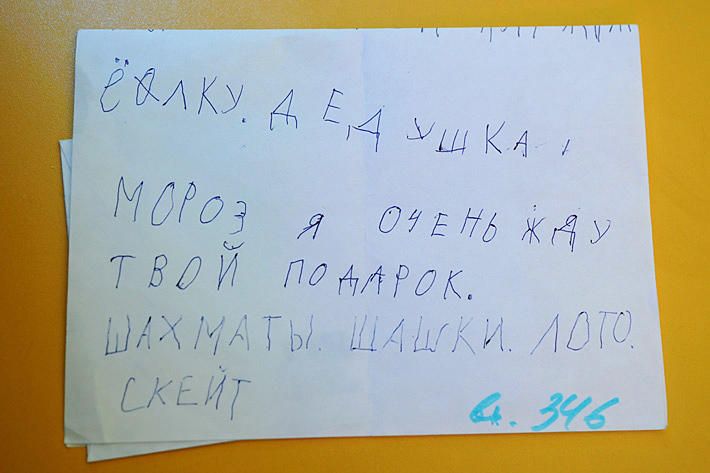 ЁЛКУ. ДЕДУШКА,
МОРОЗ Я ОЧЕНЬ ЖДУ
ТВОЙ ПОДАРОК.
ШАХМАТЫ. ШАШКИ. ЛОТО.
СКЕЙТ
вх. 346